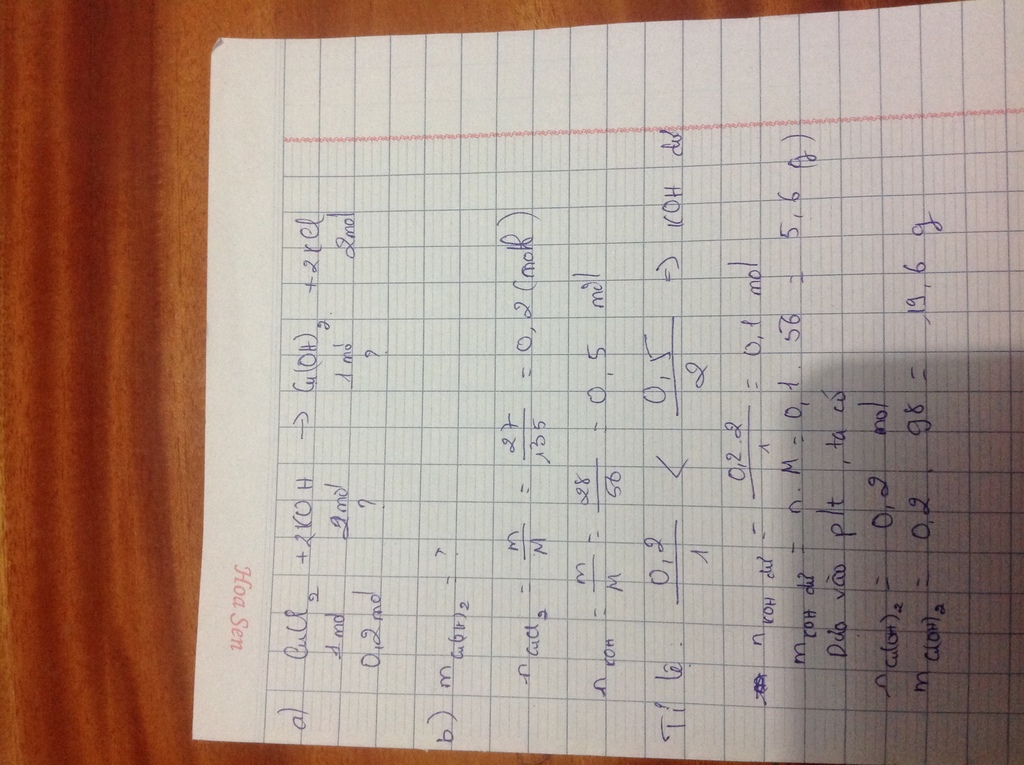 Hoa Sen
a) CuCl2 + 2KOH → Cu(OH)2 + 2KCl
1 mol 2mol 1 mol 2mol
0,2 mol ? ?
b) m Cu(OH)2 = ?
n CuCl2 = m/M = 27/135 = 0,2 (mol)
n KOH = m/M = 28/56 = 0,5 mol
Tỉ lệ : 0,2/1 < 0,5/2 => KOH dư
n KOH dư = 0,2.2/1 = 0,1 mol
m KOH dư = n . M = 0,1 . 56 = 5,6 (g)
Dựa vào p/t , ta có
n Cu(OH)2 = 0,2 mol
m Cu(OH)2 = 0,2 . 98 = 19,6 g